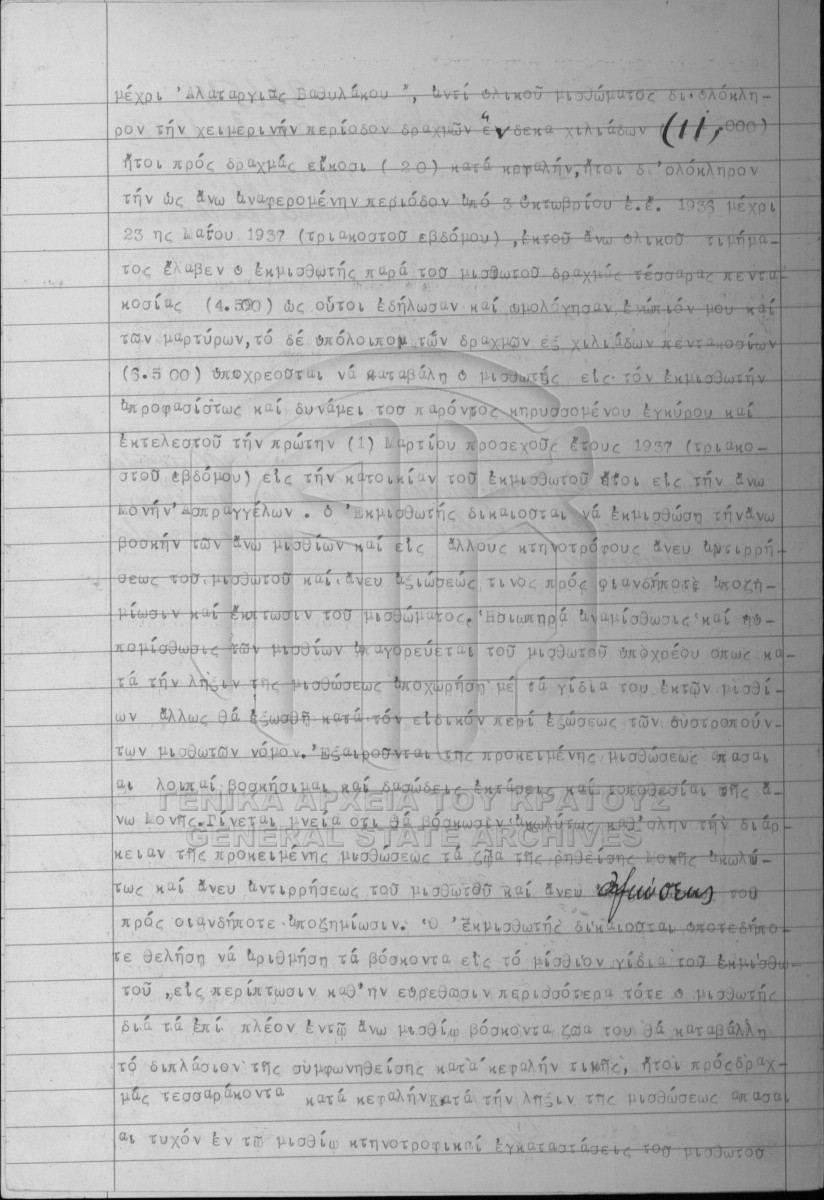 μέχρι 'Αλαταργιάς Βαθυλάκου ", ἀντί ολικοῦ μισθώματος δι'ολόκλη-
ρον τήν χειμερινήν περίοδον δραχμῶν ἕνδεκα χιλιάδων (11,000)
ἤτοι πρός δραχμάς εἴκοσι ( 20) κατά κεφαλήν, ἤτοι δι'ολόκληρον
τήν ὡς ἄνω ἀναφερομένην περίοδον ἀπό 3 Οκτωβρίου ἐ.ἔ. 1933 μέχρι
23 ης Μαΐου 1937 (τριακοστοῦ εβδόμου) ,ἐκτοῦ ἄνω ολικοῦ τιμήμα-
τος ἔλαβεν ο ἐκμισθωτής παρά τοῦ μισθωτοῦ δραχμάς τέσσαρας πεντα-
κοσίας (4.500) ὡς οὗτοι ἐδήλωσαν καί ωμολόγησαν ἐνώπιόν μου καί
τῶν μαρτύρων, τό δέ υπόλοιπον τῶν δραχμῶν εξ χιλιάδων πεντακοσίων
(3.500) ὑποχρεοῦται νά καταβάλη ο μισθωτής εἰς τόν ἐκμισθωτήν
ἀπροφασίστως καί δυνάμει τοῦ παρόντος κηρυσσομένου ἐγκύρου καί
ἐκτελεστοῦ τήν πρώτην (1) Μαρτίου προσεχοῦς ἔτους 1937 (τριακο-
στοῦ εβδόμου) εἰς τήν κατοικίαν τοῦ ἐκμισθωτοῦ ἤτοι εἰς τήν ἄνω
Μονήν'Ασπραγγέλων . Ο 'Εκμισθωτής δικαιοῦται νά ἐκμισθώση τήνἄνω
βοσκήν τῶν ἄνω μισθίων καί εἰς ἄλλους κτηνοτρόφους ἄνευ ἀντιρρή-
σεως τοῦ μισθωτοῦ καί ἄνευ ἀξιώσεώς τινος πρός οιανδήποτε ἀποζη-
μίωσιν καί ἔκπτωσιν τοῦ μισθώματος. 'Εσιωπηρά ἀναμίσθωσις καί ηυ-
πομίσθωσις τῶν μισθίων ἀπαγορεύεται τοῦ μισθωτοῦ υποχρέου οπως κα-
τά τήν λῆξιν τῆς μισθώσεως ἀποχωρήση μέ τά γίδια του ἐκτῶν μισθί-
ων ἄλλως θά ἐξωσθῆ κατά τόν εἰδικόν περί ἐξώσεως τῶν δυστροπούν-
των μισθωτῶν νόμον. 'Εξαιροῦνται τῆς προκειμένης μισθώσεως απασαι
αι λοιπαί βοσκήσιμαι καί δασώδεις ἐκτάσεις καί τοποθεσίαι τῆς ἄ-
νω Μονῆς. Γίνεται μνεία οτι θά βόσκωσιν ἀκωλύτως καθ'ολην τήν διάρ-
κειαν τῆς προκειμένης μισθώσεως τά ζῶα τῆς ρηθείσης Μονῆς ἀκωλύ-
τως καί ἄνευ ἀντιρρήσεως τοῦ μισθωτοῦ καί ἄνευ ἀξιώσεως του
πρός οιανδήποτε ἀποζημίωσιν. Ο 'Εκμισθωτής δικαιοῦται οποτεδήπο-
τε θελήση νά ἀριθμήση τά βόσκοντα εἰς τό μίσθιον γίδια τοῦ ἐκμισθω-
τοῦ ,εἰς περίπτωσιν καθ'ην εὑρεθῶσιν περισσότερα τότε ο μισθωτής
διά τά ἐπί πλέον ἐντῷ ἄνω μισθίῳ βόσκοντα ζῶα του θά καταβάλλη
τό διπλάσιον τῆς συμφωνηθείσης κατά κεφαλήν τιμῆς, ἤτοι πρόςδραχ-
μάς τεσσαράκοντα κατά κεφαλήν.Κατά τήν λῆξιν τῆς μισθώσεως απασαι
αι τυχόν ἐν τῷ μισθίῳ κτηνοτροφικαί ἐγκαταστάσεις τοῦ μισθωτοῦ
ΓΕΝΙΚΑ ΑΡΧΕΙΑ ΤΟΥ ΚΡΑΤΟΥΣ
GENERAL STATE ARCHIVES